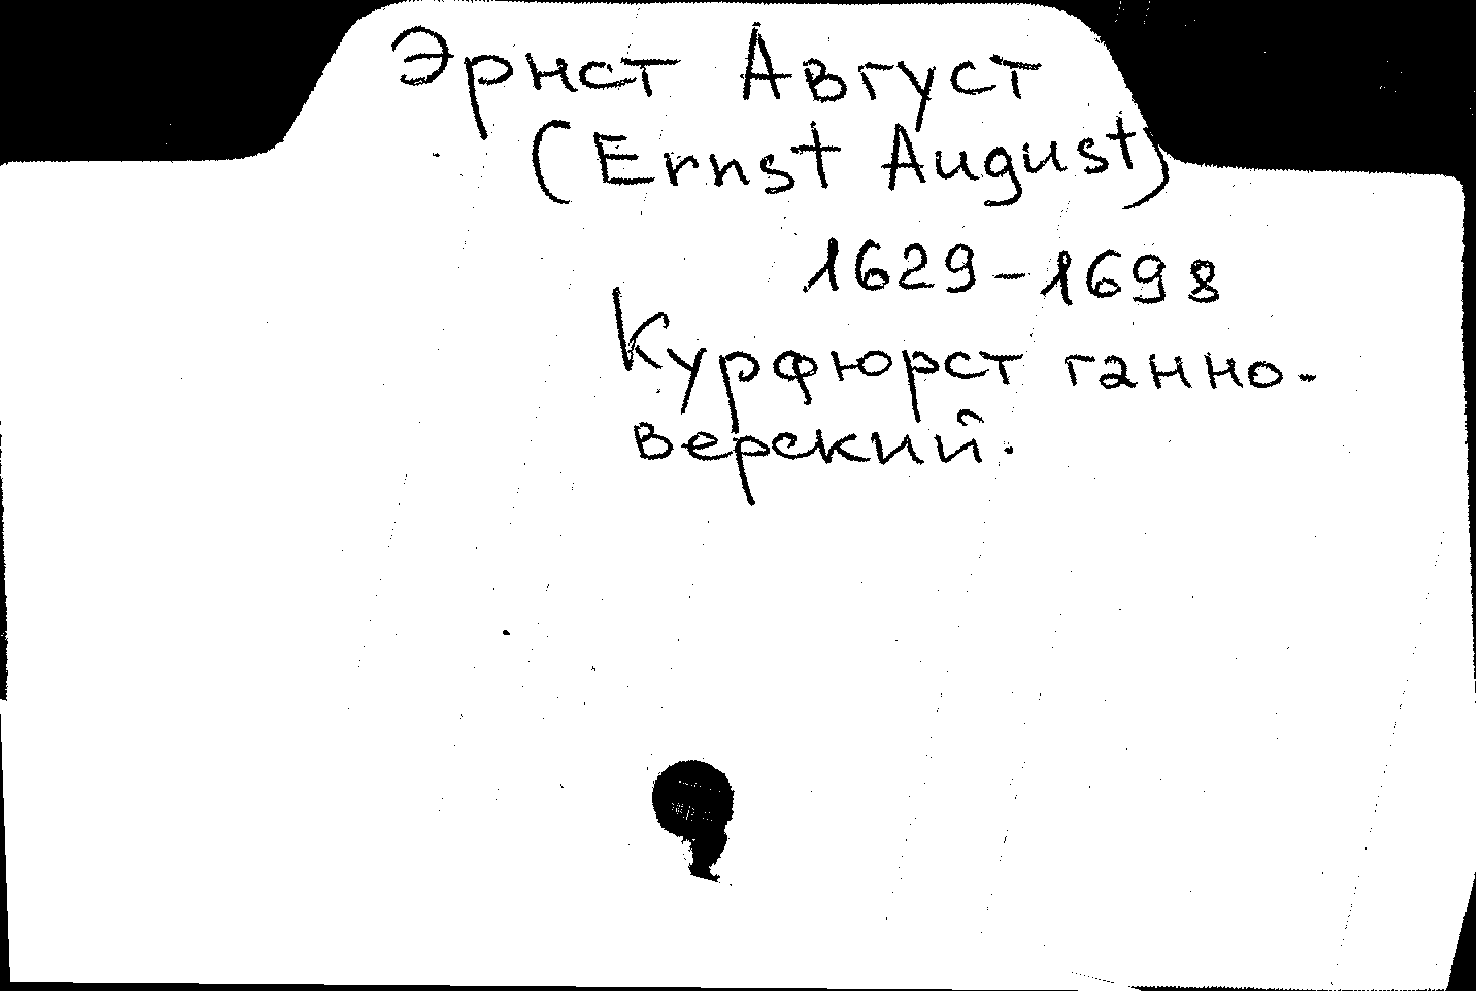 Эрнст Август
(Ernst August)
1629-1698
Курфюрст ганно-
верский.